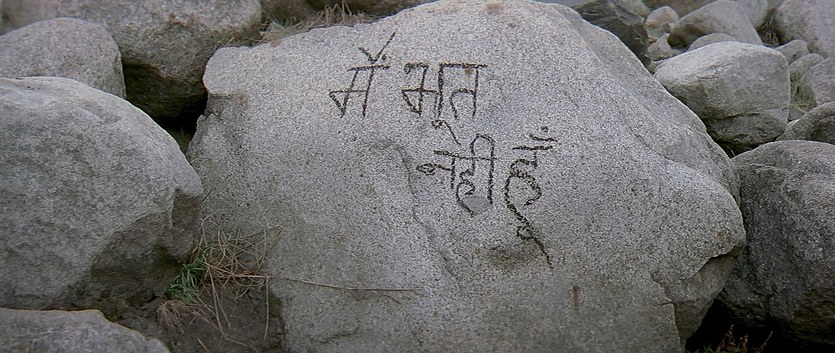 में भूत
नही हूँ